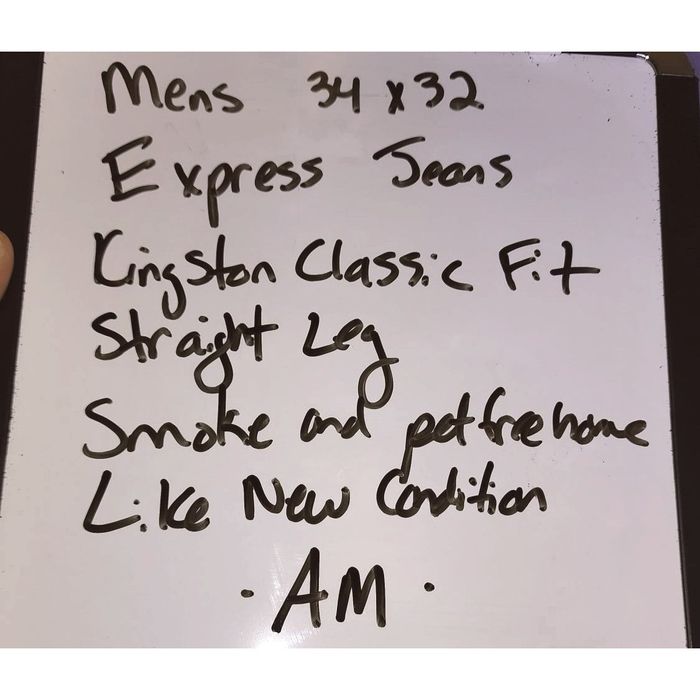 Mens 34 x 32
Express Jeans
Kingston Classic Fit
Straight Leg
Smoke and pet free home
Like New Condition
· AM ·